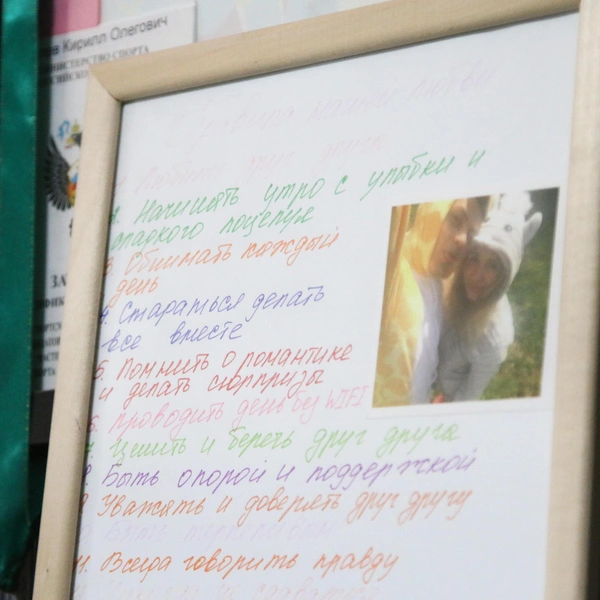 в Кирилл Олегович
МИНИСТЕРСТВО СПОРТА
друг друга
2. Начинать утро с улыбки и
сладкого поцелуя
3. Обнимать каждый
день
4. Стараться делать
все вместе
5. Помнить о романтике
и делать сюрпризы
6. Проводить день без WIFI
7. Ценить и беречь друг друга
8. Быть опорой и поддержкой
9. Уважать и доверять друг другу
Быть
11. Всегда говорить правду